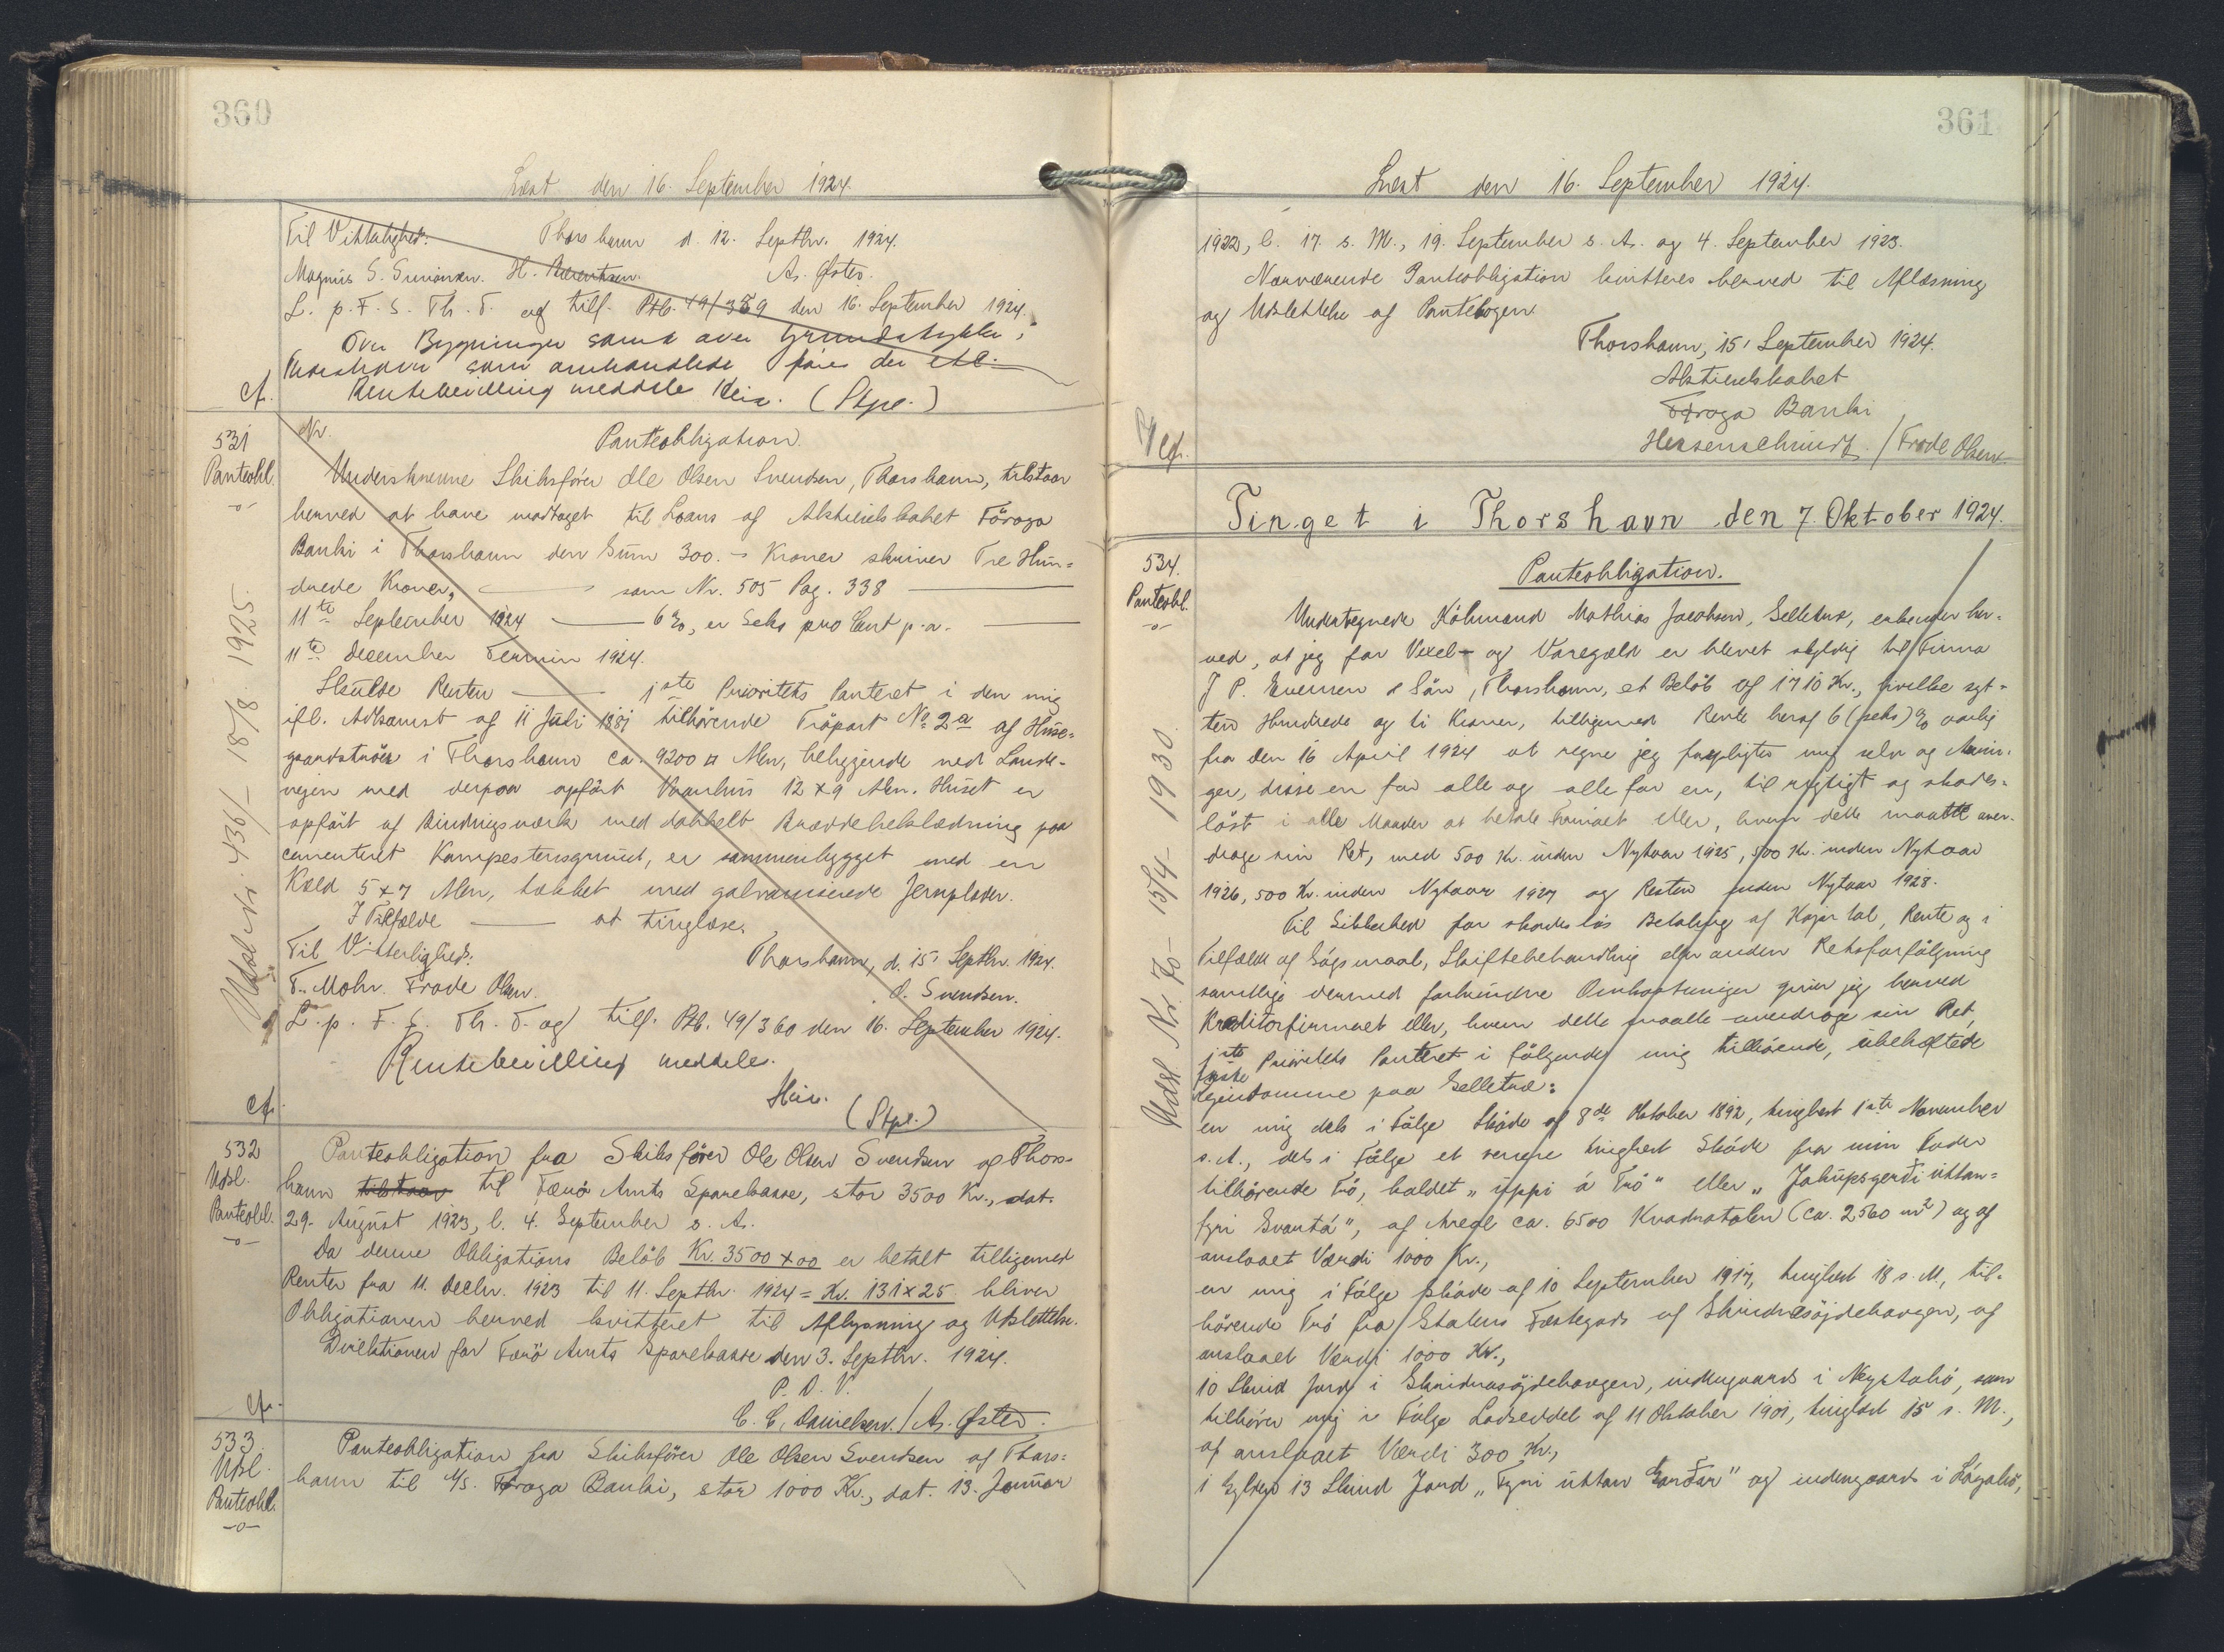 360
Læst den 16. September 1924.
Til Vitterlighed: Thorshavn d. 12. Septbr. 1924.
Magnus S. Simonsen. H. Berentsen. A. Øster.
L. p. F. S. Th. T. og tilf. Ptb. 49/359 den 16. September 1924.
Over Bygninger samt over Grundstykke i
Thorshavn som omhandlede føres der etc.
cf. Rentebevilling meddelt Heis. (Stpl.)
531
Panteobl.
-o-
Udsl. Nr. 436/- 18/8 1925.
Kr.
Panteobligation.
Underskrevne Skibsfører Ole Olsen Svendsen, Thorshavn, tilstaar
herved at have modtaget til Laans af Aktieselskabet Föroya
Banki i Thorshavn den Sum 300.- Kroner skriver Tre Hun=
drede Kroner, — som Nr. 505 Pag. 338 —
11te September 1924 — 6%, er Seks pro Cent p. a. —
11te December Termin 1924.
Skulde Renten — 1ste Prioritets Panteret i den mig
ifl. Adkomst af 11 Juli 1881 tilhørende Tröpart No 2a af Huse=
grundstuöer i Thorshavn ca. 9200 □ Alen, beliggende ved Lande-
vejen med derpaa opført Vaanhus 12 x 9 Alen. Huset er
opført af Bindingsværk med dobbelt Bræddebeklædning paa
cementeret Kampestensgrund, er sammenbygget med en
Kæld 5 x 7 Alen, tækket med galvaniserede Jernplader.
I Tilfælde — at tinglæse.
Til Vitterlighed: Thorshavn, d. 15 Septbr. 1924.
T. Mohr. Frode Olsen. O. Svendsen.
L. p. F. S. Th. T. og tilf. Ptb. 49/360 den 16. September 1924.
Rentebevilling meddeles.
cf. Heis. (Stpl.)
532
Udsl.
Panteobl.
-o-
Panteobligation fra Skibsfører Ole Olsen Svendsen af Thors-
havn tilstaar til Færø Amts Sparekasse, stor 3500 Kr., dat.
29. August 1923, l. 4. September s. A.
Da denne Obligations Beløb Kr. 3500 x 00 er betalt tilligemed
Renter fra 11. Decbr. 1923 til 11. Septbr. 1924 = Kr. 131 x 25 bliver
Obligationen herved kvitteret til Aflysning og Udslettelse.
Direktionen for Færö Amts Sparekasse den 3. Septbr. 1924.
P. D. V.
cf. C. C. Danielsen. / A. Øster.
533
Udsl.
Panteobl.
-o-
Panteobligation fra Skibsfører Ole Olsen Svendsen af Thors=
havn til A/S. Föroya Banki, stor 1000 Kr., dat. 13. Januar
361
Læst den 16. September 1924.
1922, l. 17. s. M., 19. September s. A. og 4. September 1923.
Nærværende Panteobligation kvitteres herved til Aflæsning
og Udslettelse af Pantebogen.
Thorshavn, 15' September 1924.
Aktieselskabet
Föroya Banki
cf. Heksenschmidt / Frode Olsen
Tinget i Thorshavn den 7. Oktober 1924.
534.
Panteobl.
-o-
Udsl Nr. 70- 15/4- 1930.
Panteobligation.
Undertegnede Købmand Mathias Jacobsen, Selletræ, erkender her-
ved, at jeg for Vexel- og Varegæld er blevet skyldig til Firma
J P. Evensen & Sön, Thorshavn, et Beløb af 1710 Kr., hvilke syt-
ten Hundrede og ti Kroner, tilligemed Rente heraf 6 (seks) % aarlig
fra den 16 April 1924 at regne jeg forpligter mig selv og Arvin-
ger, disse en for alle og alle for en, til rigtigt og skades-
löst i alle Maader at betale Firmaet eller, hvem dette maatte over-
drage sin Ret, med 500 Kr. inden Nytaar 1925, 500 Kr. inden Nytaar
1926, 500 Kr. inden Nytaar 1927 og Resten inden Nytaar 1928.
Til Sikkerhed for skadeslös Betaling af Kapital, Rente og i
Tilfælde af Sögsmaal, Skiftebehandling eller anden Retsforfölgning
samtlige dermed forbundne Omkostninger giver jeg herved
Kreditorfirmaet eller, hvem dette maatte overdrage sin Ret
1ste Prioritets Panteret i fölgende mig tilhörende, ubehæftede
faste Ejendomme paa Selletræ:
en mig dels i Fölge Sköde af 8de Oktober 1892, tinglæst 1ste November
s. A., dels i Fölge et senere tinglæst Sköde fra min Fader
tilhörende Trö, kaldet „uppi á Trö“ eller „Jakupsgerði uttan=
fyri Svartá“, af Areal ca. 6500 Kvadratalen (ca. 2560 m²) og af
anslaaet Værdi 1000 Kr.,
en mig i Fölge Sköde af 10 September 1917, tinglæst 18 s. M., til-
hörende Trö fra Statens Fæstegods af Skindnesöjdehavgen, af
anslaaet Værdi 1000 Kr.,
10 Skind Jord i Skindnesöjdehavgen, indengaards i Neystabö, som
tilhører mig i Fölge Lodseddel af 11 Oktober 1901, tinglæst 15 s. M.,
af anslaaet Værdi 300 Kr.,
i Eylden 13 Skind Jord „Fyri uttan Garðar“ og indengaards i Lágabö,